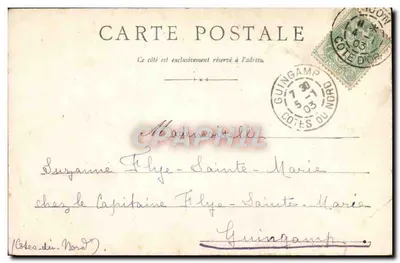 CARTE POSTALE
Ce côté est exclusivement réservé à l'adresse
DIJON
4
03
COTE D'OR
GUINGAMP
7 30
5-1
03
COTES DU NORD
Mademoiselle
Suzanne Flye-Sainte-Marie
chez le Capitaine Flye-Sainte-Marie
Guingamp.
(Côtes-du-Nord).